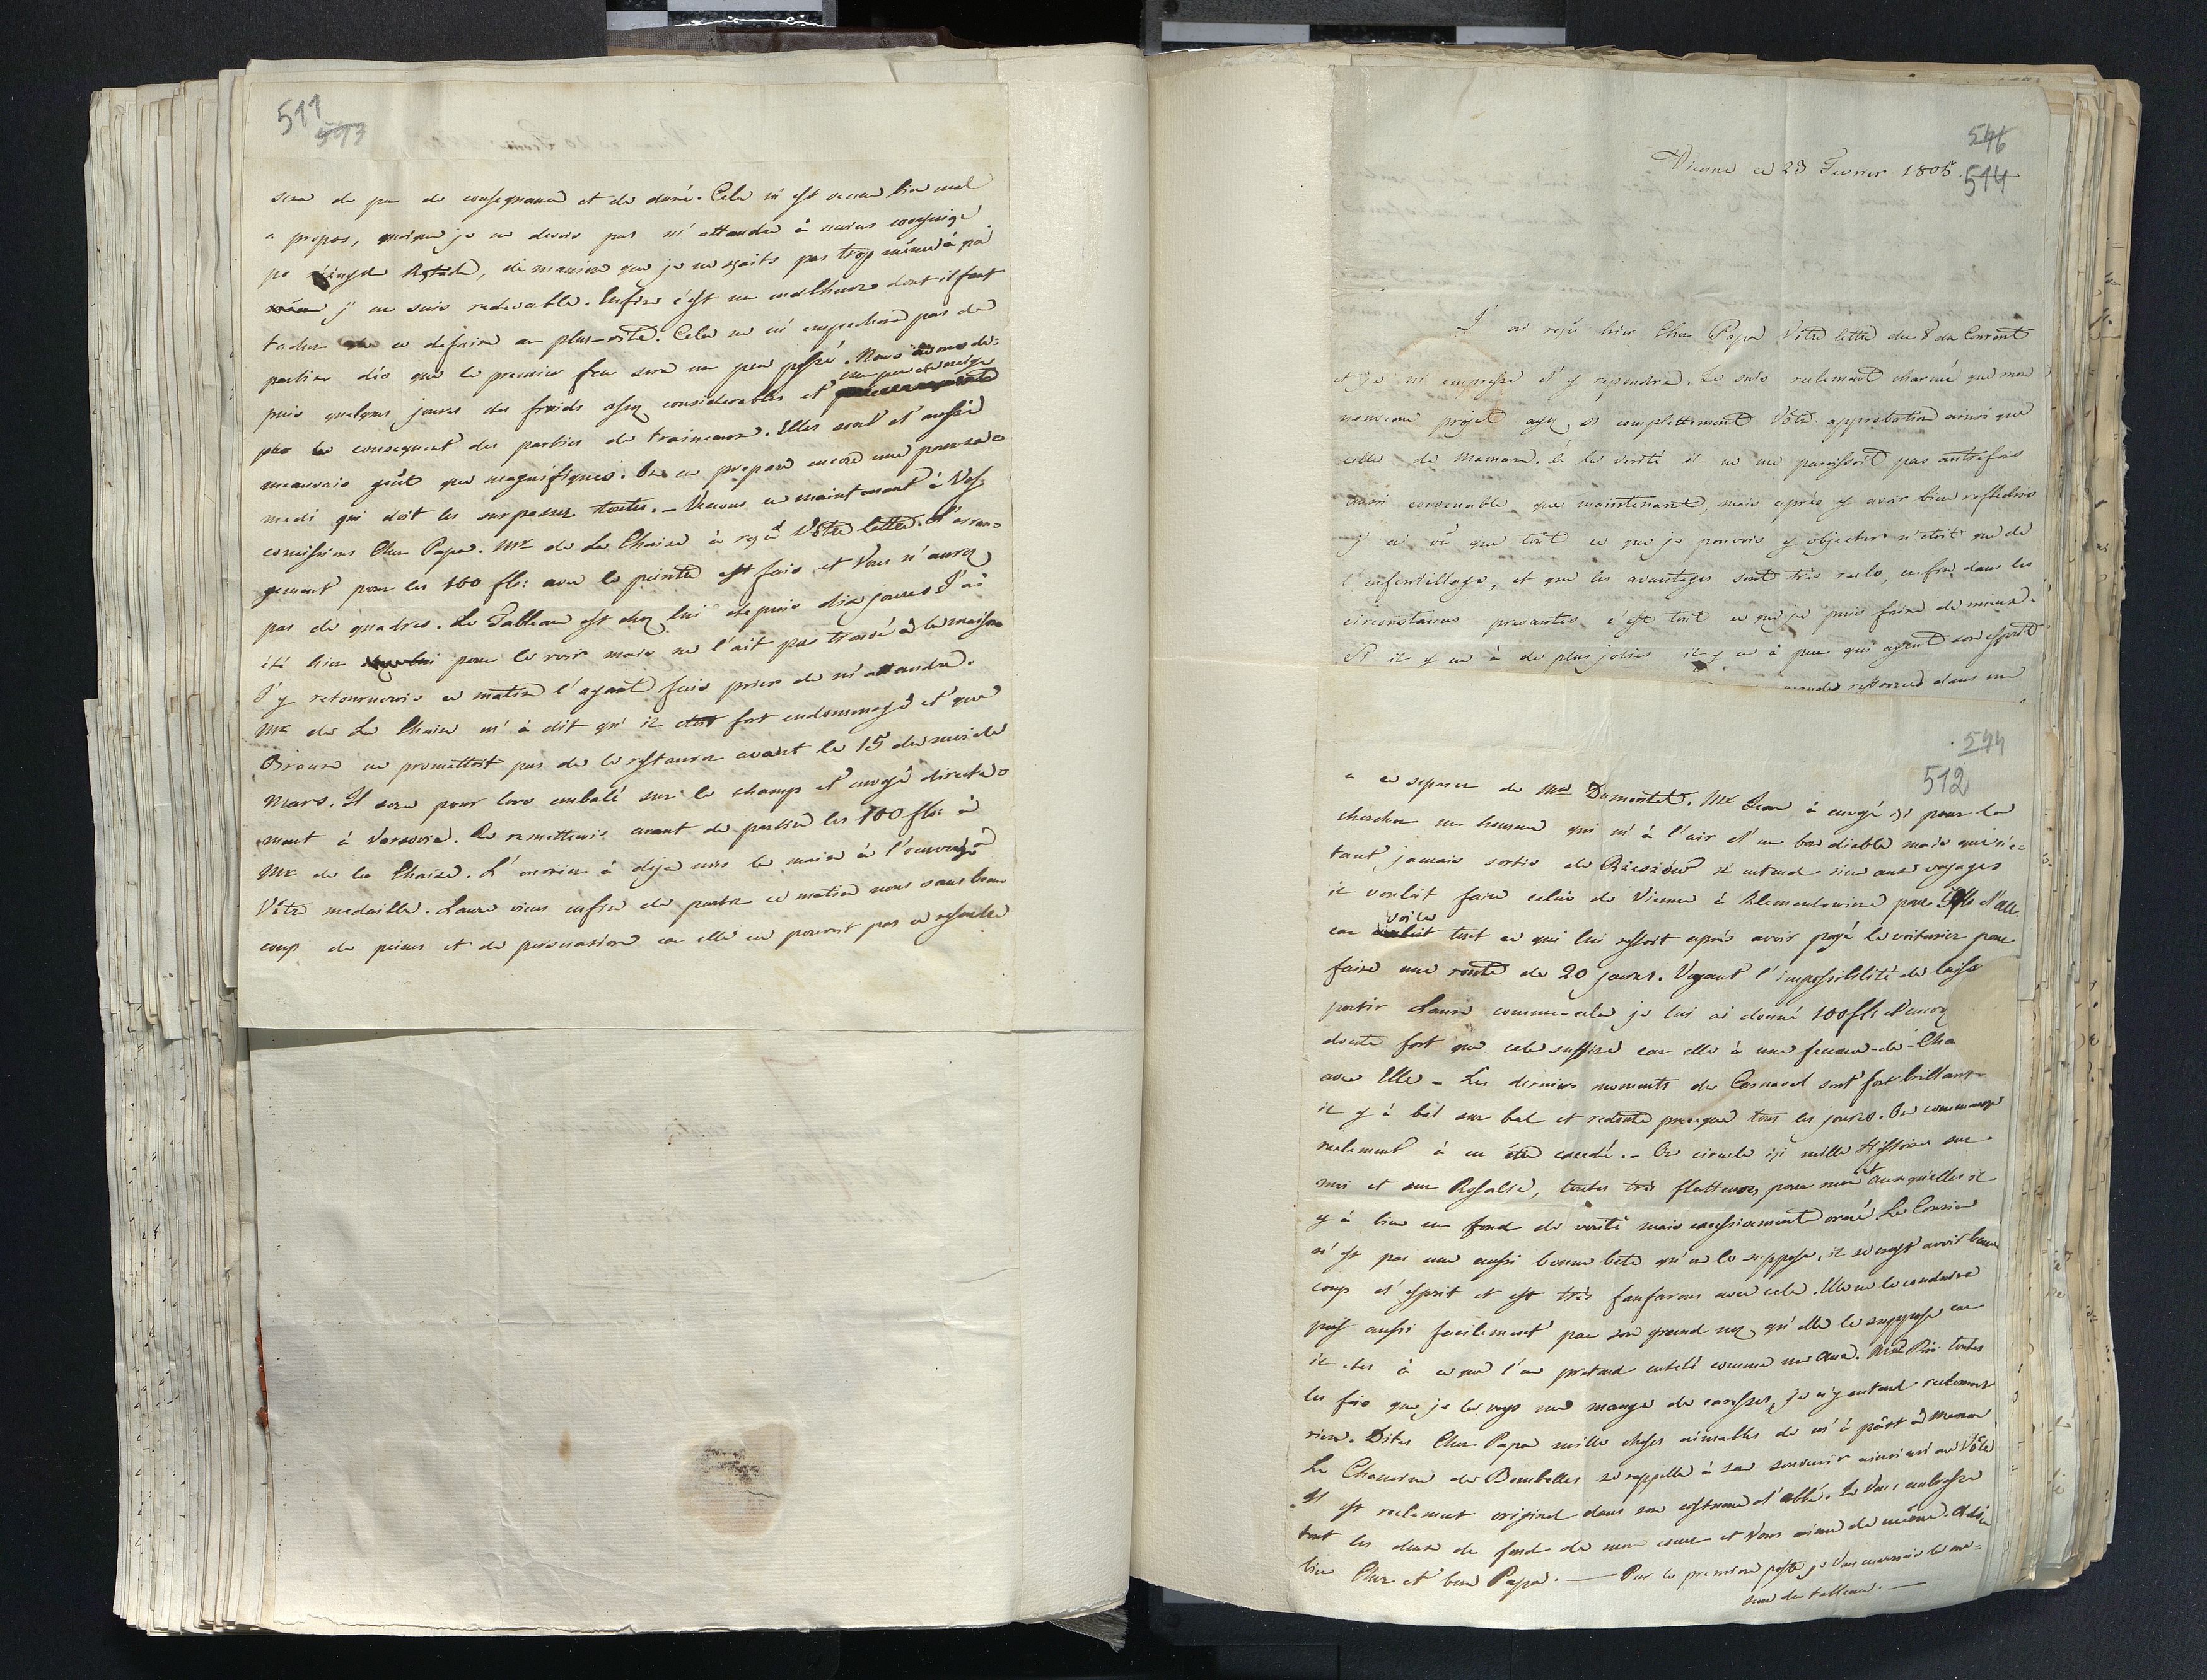 511
513
sera de peu de consequence et de duré. Cela m'est venue bien mal
a propos, quoique je ne devois pas m'attendre à moins
de maniere que je ne sçaits pas trop même à qui
j'en suis redevable. Enfin c'est un malheur dont il faut
tacher de ce defaire au plus-vite. Cela ne m'empechera pas de
partire dès que le premier feu sera un peu passé. Nous avons de-
puis quelques jours des froids assez considerables et un peu de neige
par consequent des parties de traineaux. Elles sont d'aussi
mauvais goût que magnifiques. On en prepare encore une pour sa=
medi qui doit les surpasser toutes. - Venons en maintenant à Vos
comissions Cher Papa. Mr de La Chaise à reçu Vôtre lettre. L'arran=
gement pour les 100 fl: avec le peintre est fais et Vous n'aurez
pas de quadres. Le Tableau est chez lui depuis dix jours J'ai
été hier pour le voir mais ne l'ait pas trouvé à la maison
J'y retournerais ce matin l'ayant fais prier de m'attendre.
Mr de La Chaise m'à dit qu'il etoit fort endommagé et que
ne promettoit pas de le restaurer avant le 15 du mois de
Mars. Il sera pour lors embalé sur le champs et envoyé directe=
ment à Varsovie. Je remetterais avant de partire les 100 fl: à
Mr de la Chaise. L'ouvrier à deja mis la main à l'ouvrage
Vôtre medaille. Laure viens enfin de partir ce matin non sans beau
coup de peines et de persuasion car elle ne pouvoit pas ce resoudre
546
514
Vienne ce 23 Fevrier 1805.
J'ai reçu hier Cher Papa Vôtre lettre du 8 du Courrent
et je m'empresse d'y repondre. Je suis reelement charmé que mon
nouveau projet aye si completement Vôtre approbation ainsi que
celle de Maman. à la verité il ne me paroissoit pas autrefois
aussi convenable que maintenant, mais après y avoir bien reflechie
j'ai vû que tout ce que je pouvois y objecter n'etoit que de
l'enfantillage, et que les avantages sont très reels, enfin dans les
circonstances presentes c'est tout ce que je puis faire de mieux.
S'il y en à de plus jolies il y en à peu qui ayent son esprit
dans un
544
512
a ce separer de Me Dumontet. Mr Jean à envoyé ici pour la
chercher un homme qui m'à l'air d'un bon diable mais qui n'é=
tant jamais sortis de Rzeszów n'entend rien aux voyages
il vouloit faire celui de Vienne à Klementowice pour
car voila tout ce qui lui restoit après avoir payé le voiturier pour
faire une route de 20 jours. Voyant l'impossibilité de laisser
partir Laure comme-cela je lui ai donné 100 fl: et encor
doute fort que cela suffise car elle à une femme-de-Cha
avec Elle - Les derniers moments du Carnaval sont fort brillants
il y à bal sur bal et redoute presque tous les jours. On commence
reelement à en être excedé. - On circule ici mille Histoires sur
moi et sur Rosalie, toutes très flatteuses pour moi et auxquelles il
y à bien un fond de verité mais excessivement orné. Le Cousin
n'est pas une aussi bonne bete qu'on le suppose, il se croit avoir beau
coup d'esprit et est très fanfarons avec cela. Elle ne le conduira
pas aussi facilement par son grand nez qu'elle le suppose car
il est à ce que l'on pretend entété comme un ane. toutes
les fois que je la voye me mange de caresses, je n'y entend reelement
rien. Dites Cher Papa mille choses aimables de m'à part à Maman
Le Chanoine de Bombelles se rappelle à son souvenir ainsi qu'au Vôtre
Il est reelement original dans son costume d'abbé. Je Vous embrasse
tout les deux du fond de mon cœur et Vous aime de même. Adieu
bien Cher et bon Papa. — Par la premiere poste je Vous enverrais la me=
sure du tableau. —